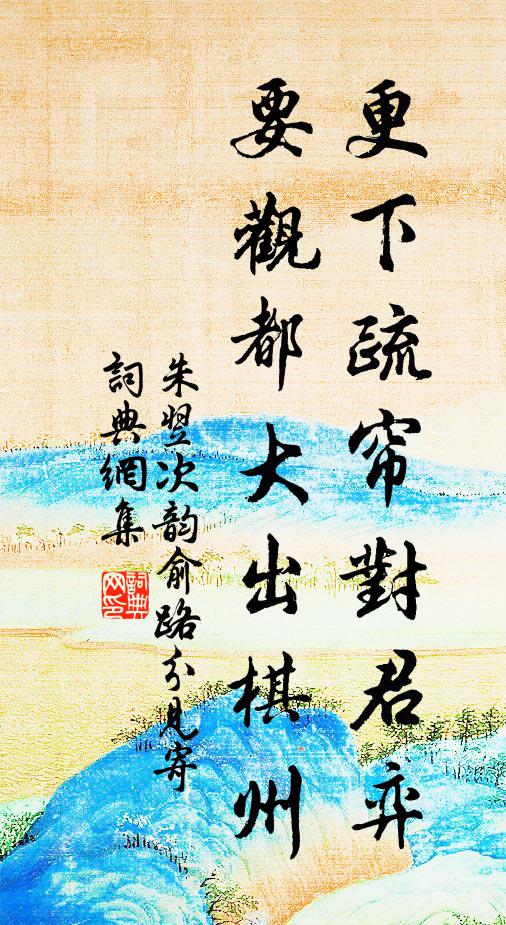 更下疏帘對君弈
要觀都大出棋州
朱翌次韵俞路分見寄
詞典網集
詞典网印